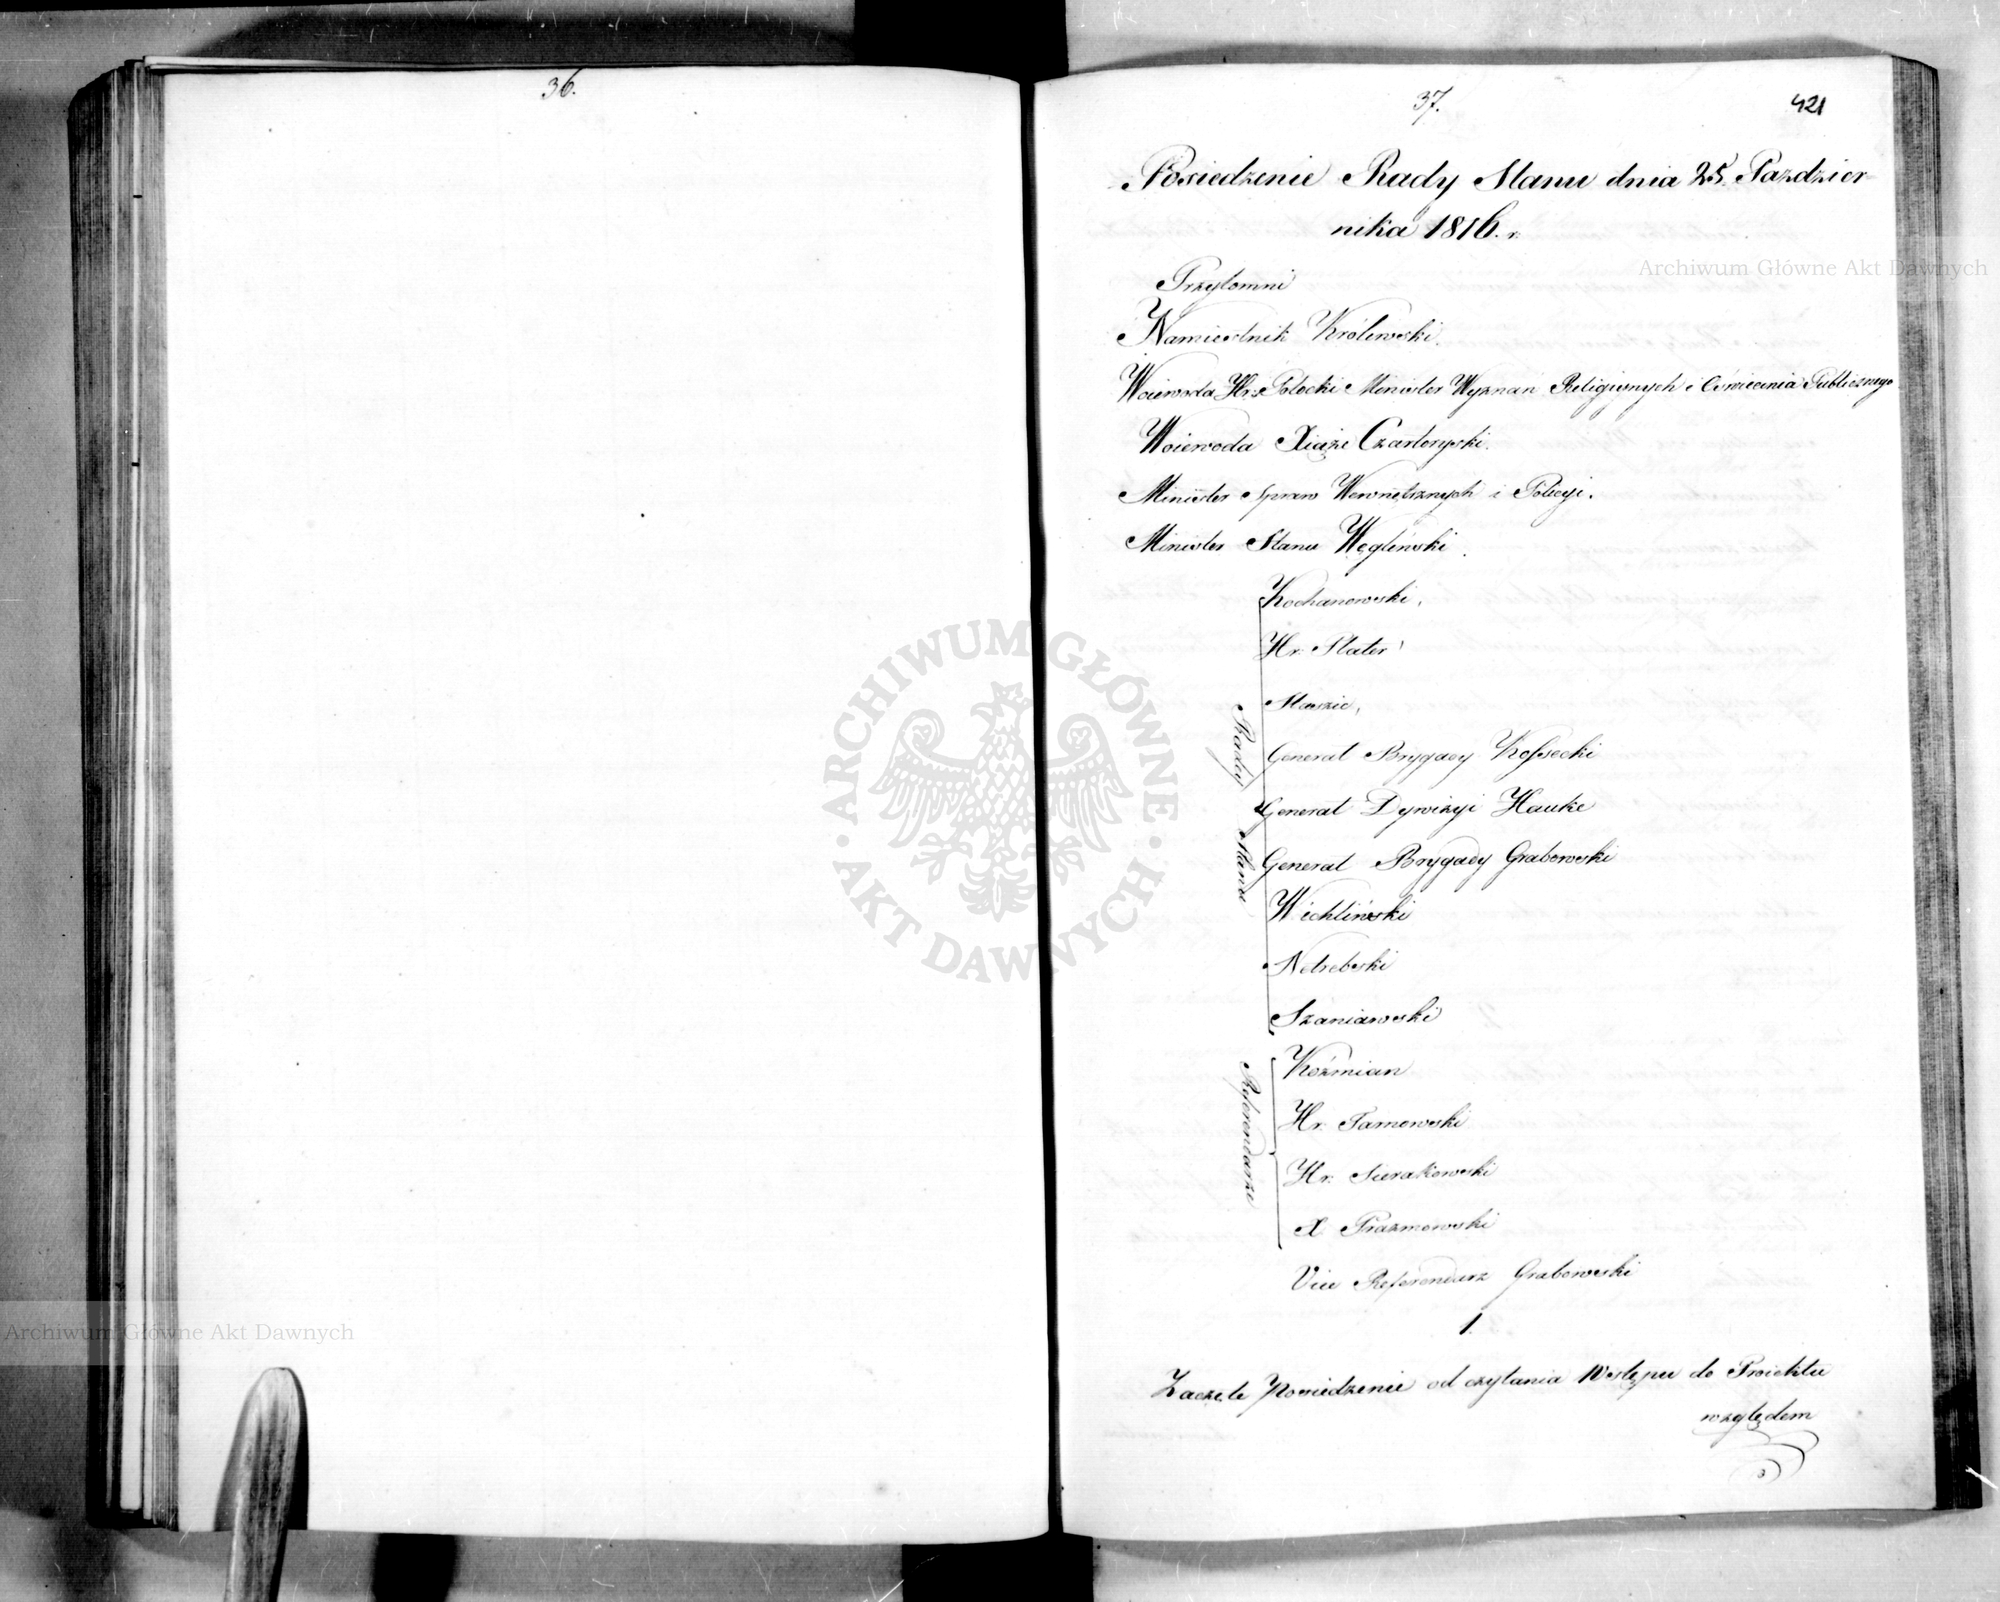 36.
37.
421
Posiedzenie Rady Stanu dnia 25. Pazdzier
nika 1816. r.
Przytomni
Namiestnik Królewski.
Woiewoda Hr: Potocki Minister Wyznań Religijnych i Oświecenia Publicznego
Woiewoda Xiąże Czartoryski.
Minister Spraw Wewnętrznych i Policyi.
Minister Stanu Węgleński.
Radcy Stanu
Kochanowski,
Hr. Plater
Staszic,
Generał Brygady Kossecki
Generał Dywizyi Hauke
Generał Brygady Grabowski
Wichliński
Netrebski
Szaniawski
Referendarze
Koźmian
Hr. Tarnowski
Hr. Sierakowski
X Prażmowski
Vice Referendarz Grabowski
1.
Zaczęte Posiedzenie od czytania Wstępu do Proiektu
względem
Archiwum Główne Akt Dawnych
Archiwum Główne Akt Dawnych
ARCHIWUM GŁÓWNE AKT DAWNYCH